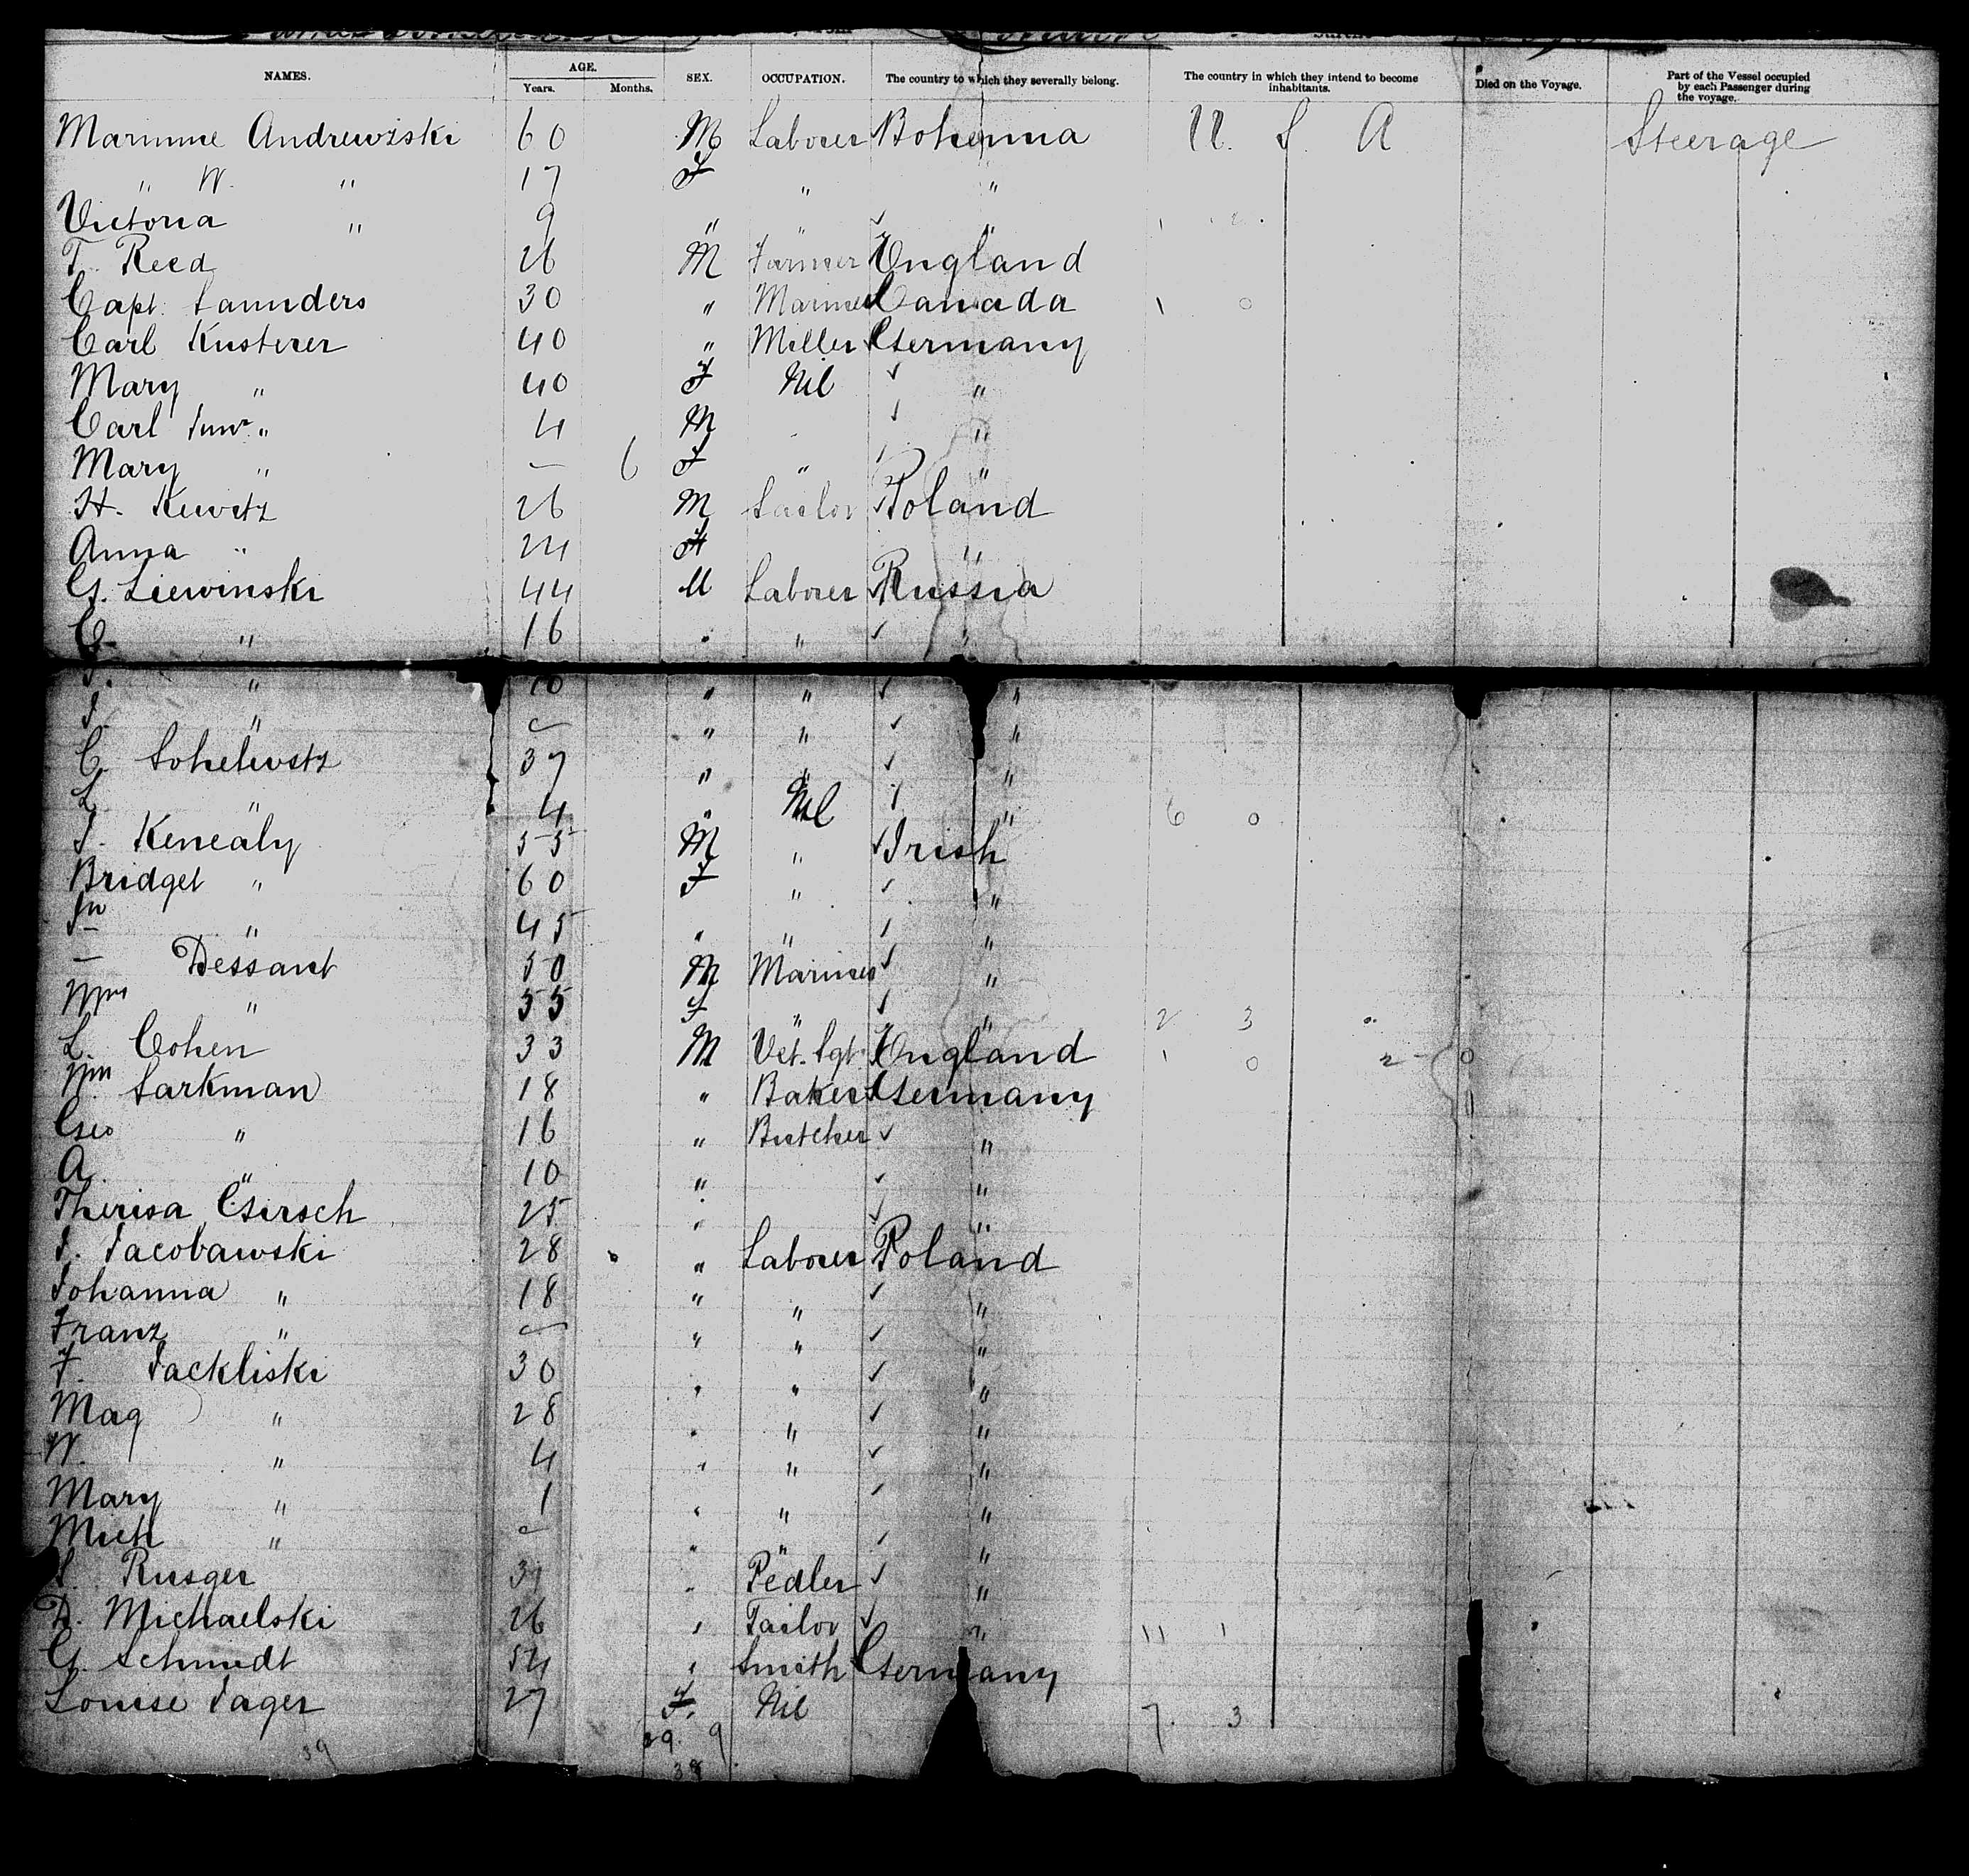 NAMES. AGE. SEX. OCCUPATION. The country to which they severally belong. The country in which they intend to become inhabitants. Died on the Voyage. Part of the Vessel occupied by each Passenger during the voyage.
Years. Months.
Andrewiski 60 M Laborer Bohemia U. S. A Steerage
" W. " 17 F " "
Victoria " 9 " " "
T. Reed 26 M Farmer England
Capt. Saunders 30 " Mariner Canada 1 0
Carl Kusterer 40 " Miller Germany
Mary " 40 F Nil "
Carl Junr " 4 M "
Mary " — 6 F " "
H. Kewitz 26 M Tailor Poland
Anna " 24 F "
G. Liewinski 44 M Laborer Russia
C. " 16 " " "
" 10 " " "
" " " "
C. 37 " " "
L. " 4 " Nil " 6 0
J. Kenealy 55 M " Irish
Bridget " 60 F " "
" 45 " " "
— Dessant 50 M Mariner "
Mrs " 55 F " " 2 3
L. Cohen 33 M Vet. Sgt. England 1 0 2 0
Wm Sarkman 18 " Baker Germany
Geo " 16 " Butcher "
A. " 10 " "
Therisa Girsch 25 " "
J. Jacobawski 28 " Laborer Poland
Johanna " 18 " " "
Franz " " " "
F. Jackliski 30 " " "
Mag " 28 " " "
W. " 4 " " "
Mary " 1 " " "
Mich " " " "
Rusger " Pedler "
D. Michaelski 26 " Tailor " 11 1
G. Schmidt 54 " Smith Germany
Louise Jager 27 F. Nil 7. 3
39 29. 9
38